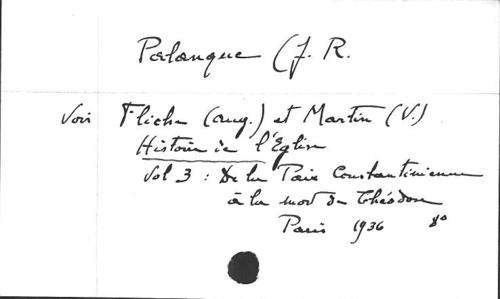 Palanque (J. R.
Voir Fliche (Aug.) et Martin (V.)
Histoire de l'Eglise
Vol 3 : De la Paix Constantinienne
à la mort de Théodose
Paris 1936 8°